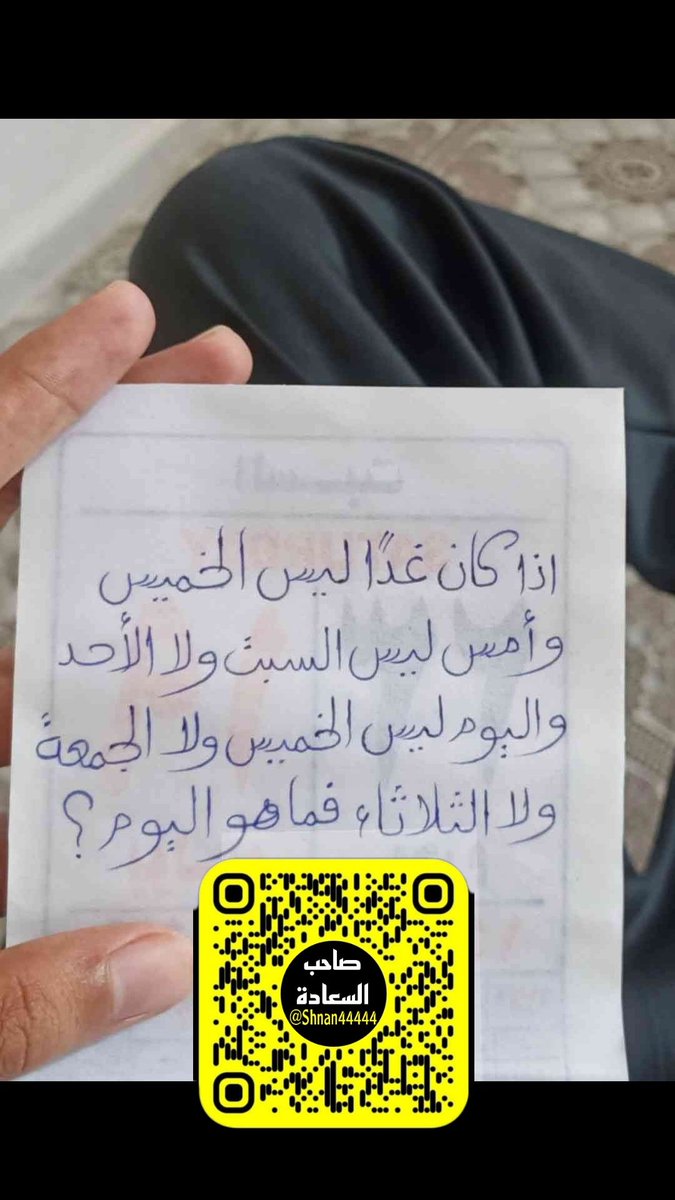 السبت
اذا كان غدًا ليس الخميس
وأمس ليس السبت ولا الأحد
واليوم ليس الخميس ولا الجمعة
ولا الثلاثاء فما هو اليوم؟
صاحب
السعادة
@Shnan44444